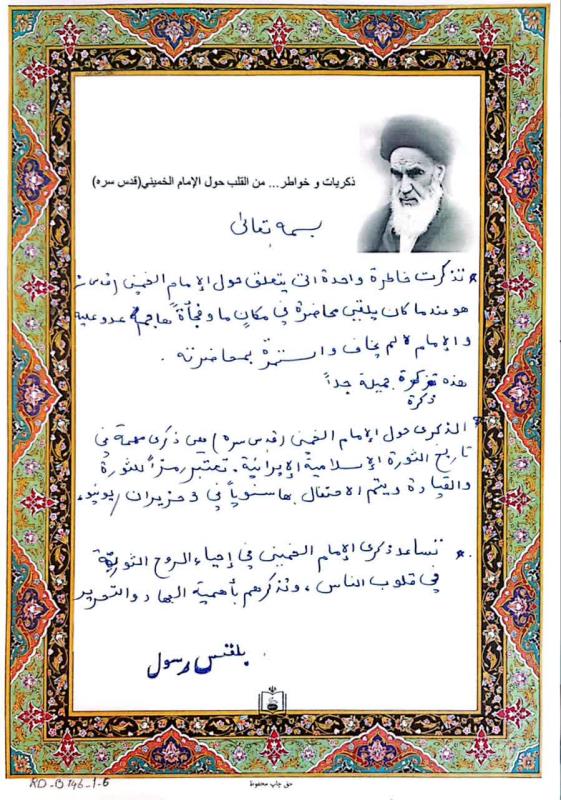 ذكريات و خواطر... من القلب حول الإمام الخميني(قدس سره)
بسمه تعالیٰ
* تذكرت خاطرة واحدة التي يتعلق حول الإمام الخميني (قدس سره
هو عندما كان يلقي محاضرة في مكانٍ ما وفجأةً هاجم عدو عليه
والإمام لم يخاف واستمرة بمحاضرته.
هذه تذكرة جميلة جداً
ذكرة
* الذكرى حول الإمام الخميني (قدس سره) هي ذكرى مهمة في
تاريخ الثورة الإسلامية الإيرانية. تعتبر رمزاً للثورة
والقيادة ويتم الاحتفال بها سنوياً في 3 حزيران/يونيو.
* تساعد ذكرى الإمام الخميني في إحياء الروح الثورية
في قلوب الناس، وتذكرهم بأهمية الجهاد والتحرير
بلقيس رسول
حق چاپ محفوظ
RD-B146-1-6